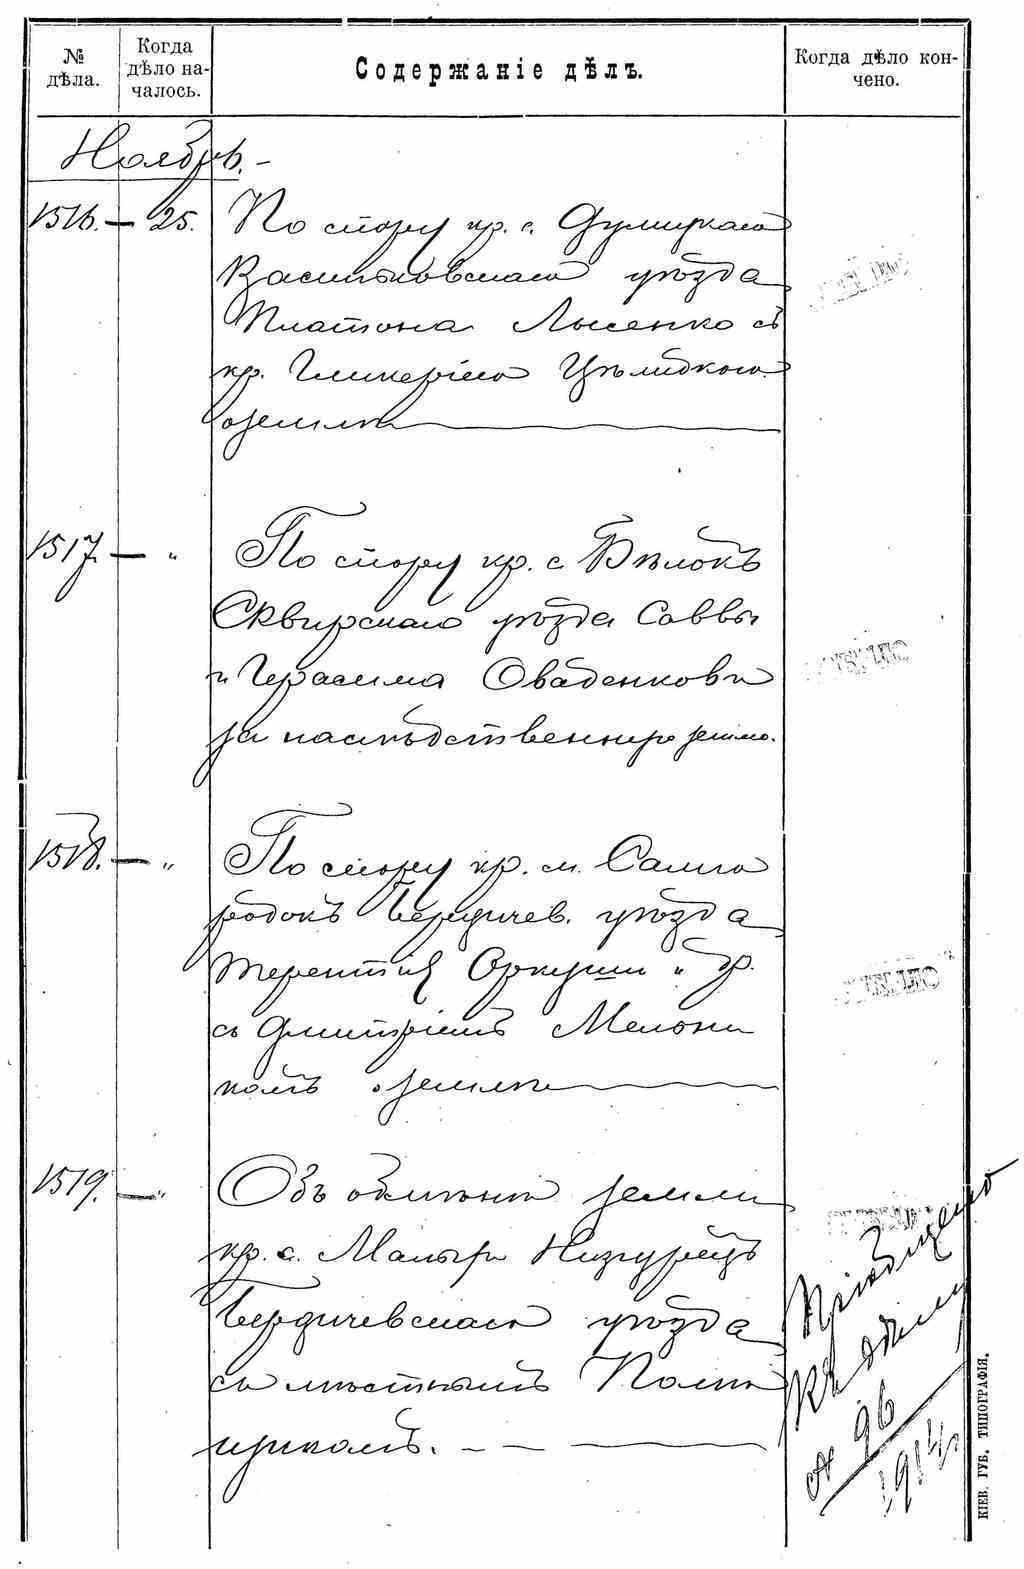 № дѣла.
Когда дѣло на-
чалось.
Содержаніе дѣлъ.
Когда дѣло кон-
чено.
Ноябрь.-
1516. — 25.
По спору кр. с. Думицкаго
Васильковскаго уѣзда
Платона Лысенко съ
кр. Гликеріею
о землѣ
1517. — "
По спору кр. с. Бѣлокъ
Сквирскаго уѣзда Саввы
и Герасима Оваденковы
за наслѣдственную землю.
1518. — "
По спору кр. м. Самго
родокъ Бердичев. уѣзда
Терентія Оркуши и др.
съ Дмитріемъ Мельни
комъ о землѣ
1519. — "
Объ обмѣнѣ земли
кр. с. Малыхъ Низгурецъ
Бердичевскаго уѣзда
съ мѣстнымъ Поме
щикомъ. — —
Пріобщено
къ дѣлу
№ 96
1914
КІЕВ. ГУБ. ТИПОГРАФІЯ.